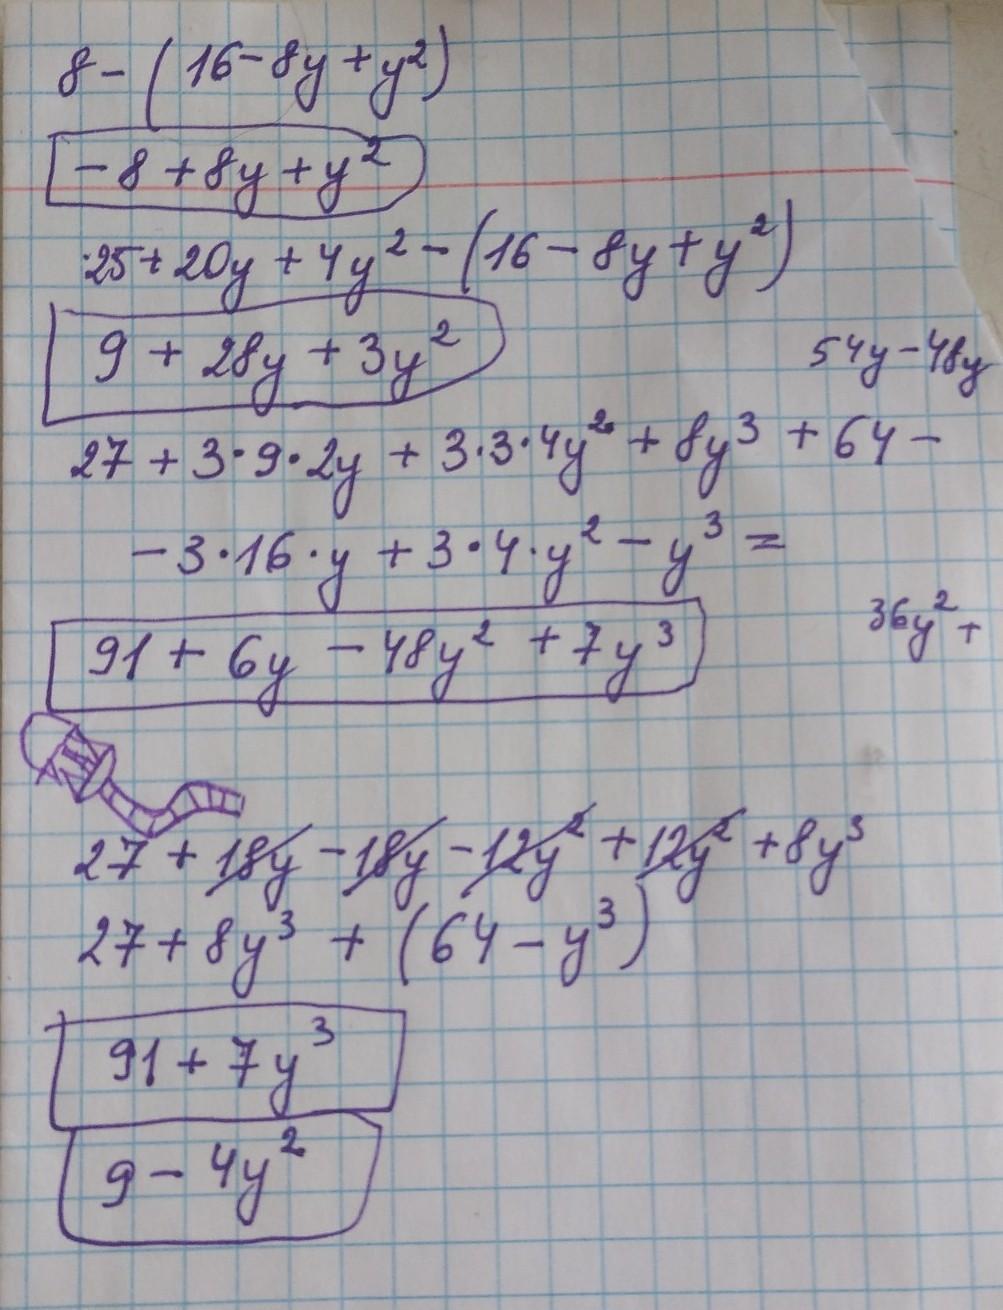 8 - (16 - 8y + y²)
- 8 + 8y + y²
25 + 20y + 4y² - (16 - 8y + y²)
9 + 28y + 3y²
54y - 48y
27 + 3·9·2y + 3·3·4y² + 8y³ + 64 -
- 3·16·y + 3·4·y² - y³ =
36y² +
91 + 6y - 48y² + 7y³
27 + 18y - 18y - 12y² + 12y² + 8y³
27 + 8y³ + (64 - y³)
91 + 7y³
9 - 4y²